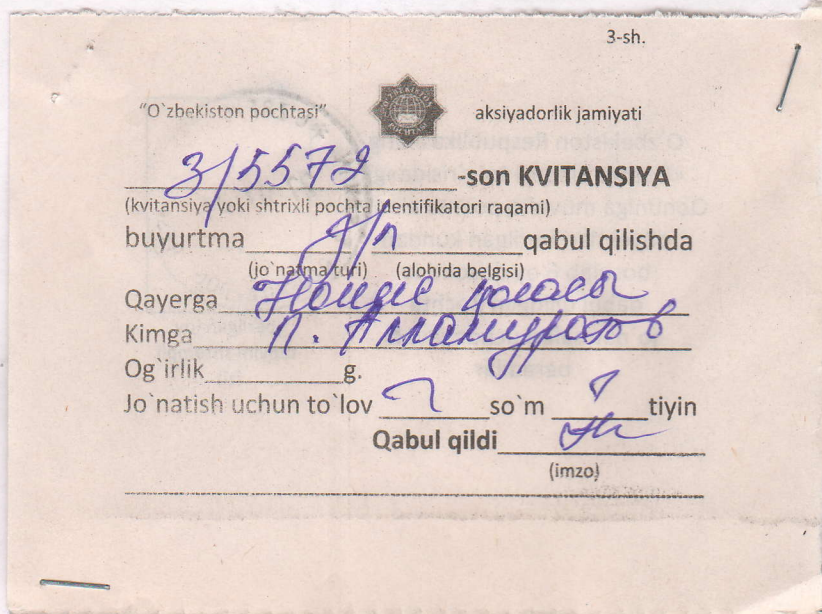 3-sh.
"O`zbekiston pochtasi" aksiyadorlik jamiyati
3/5579 -son KVITANSIYA
(kvitansiya yoki shtrixli pochta identifikatori raqami)
buyurtma з/п qabul qilishda
(jo`natma turi) (alohida belgisi)
Qayerga Нокис қаласы
Kimga П. Алламуратов
Og`irlik g.
Jo`natish uchun to`lov so`m tiyin
Qabul qildi
(imzo)